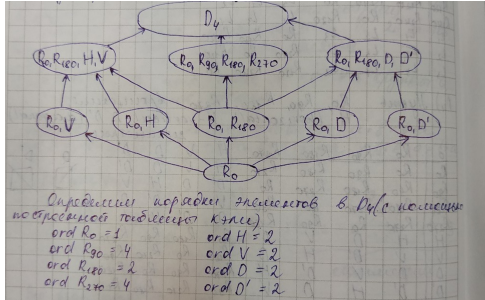 D₄
R₀, R₁₈₀, H, V
R₀, R₉₀, R₁₈₀, R₂₇₀
R₀, R₁₈₀, D, D'
R₀, V
R₀, H
R₀, R₁₈₀
R₀, D
R₀, D'
R₀
Определим порядки элементов в D₄ (с помощью
построенной таблицы Кэли).
ord R₀ = 1
ord H = 2
ord R₉₀ = 4
ord V = 2
ord R₁₈₀ = 2
ord D = 2
ord R₂₇₀ = 4
ord D' = 2